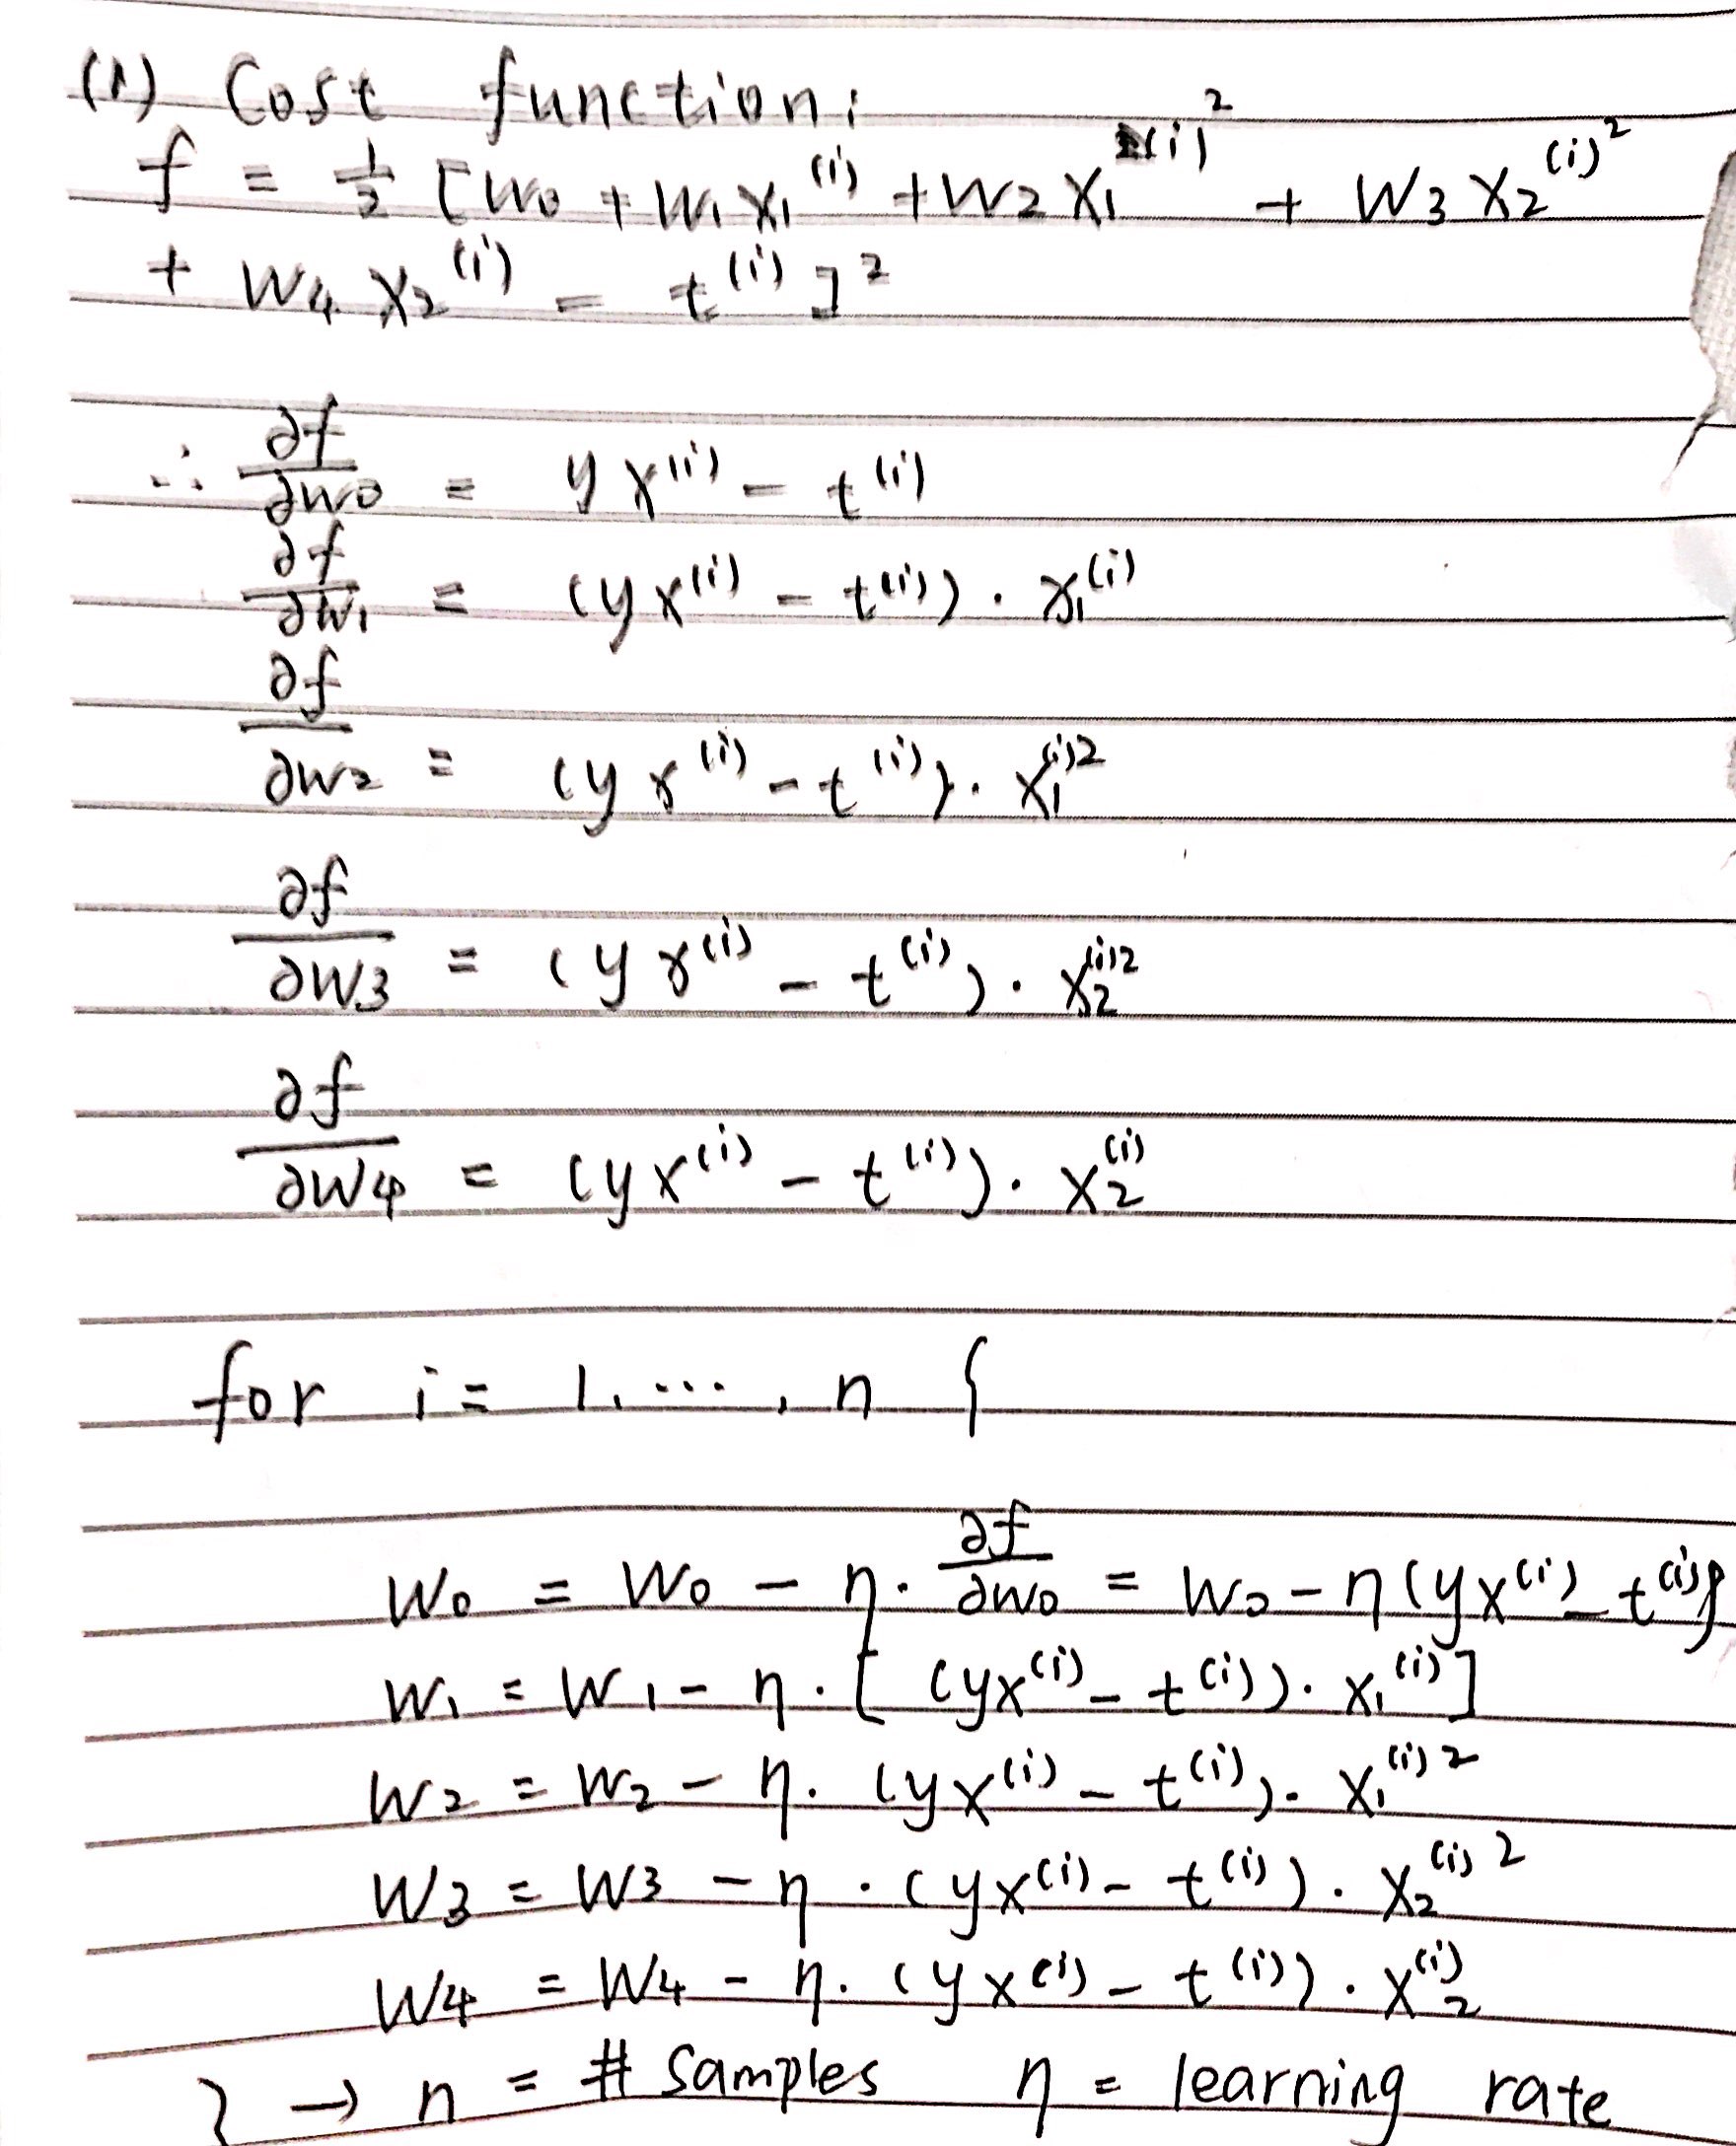 (1) Cost function:
f = 1/2 [w0 + w1 x1^(i) + w2 x1^(i)^2 + w3 x2^(i)^2
+ w4 x2^(i) - t^(i)]^2
∴ ∂f/∂w0 = yx^(i) - t^(i)
∂f/∂w1 = (yx^(i) - t^(i)) · x1^(i)
∂f/∂w2 = (yx^(i) - t^(i)) · x1^(i)2
∂f/∂w3 = (yx^(i) - t^(i)) · x2^(i)2
∂f/∂w4 = (yx^(i) - t^(i)) · x2^(i)
for i = 1, ..., n {
w0 = w0 - η · ∂f/∂w0 = w0 - η(yx^(i) - t^(i))
w1 = w1 - η · [(yx^(i) - t^(i)) · x1^(i)]
w2 = w2 - η · (yx^(i) - t^(i)) · x1^(i)2
w3 = w3 - η · (yx^(i) - t^(i)) · x2^(i)2
w4 = w4 - η · (yx^(i) - t^(i)) · x2^(i)
} → n = # samples η = learning rate